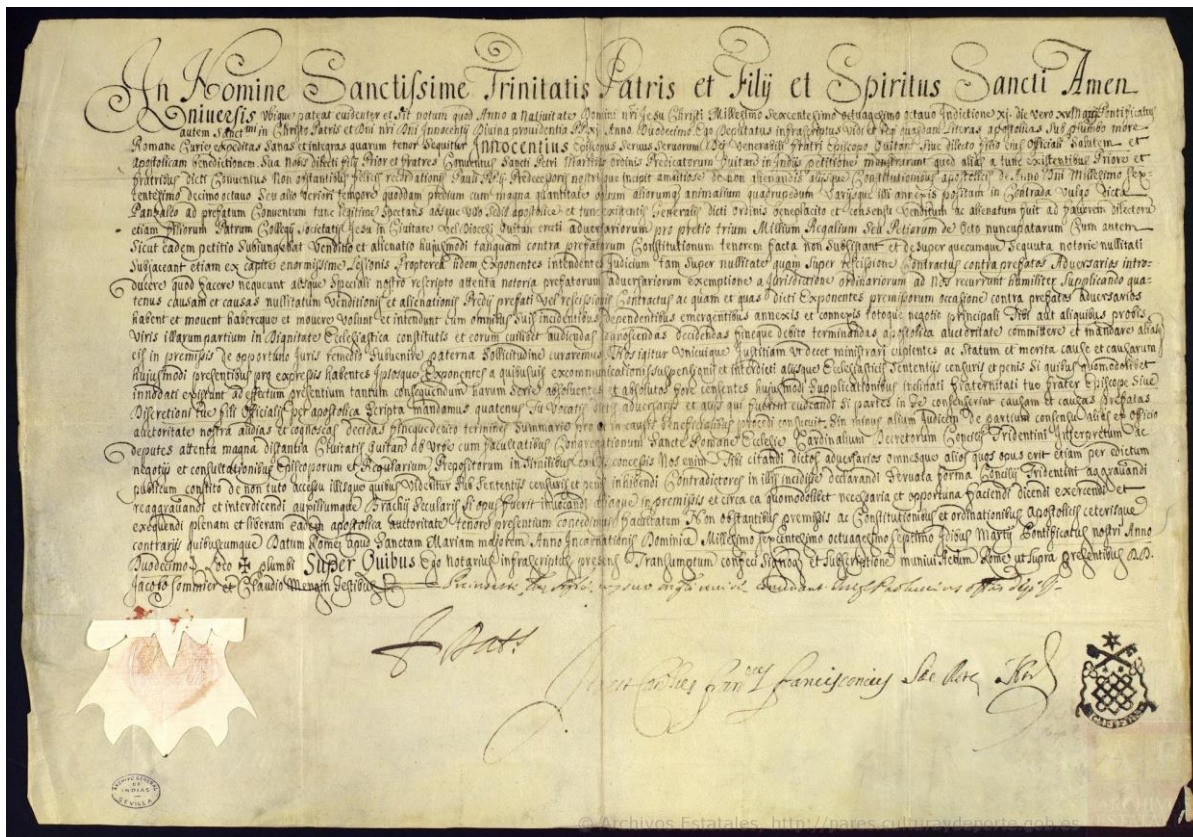 In Nomine Sanctissime Trinitatis Patris et Filij et Spiritus Sancti Amen
Universis ubique pateat evidenter et sit notum quod Anno a Nativitate Domini nri Jesu Christi Millesimo Sexcentesimo octuagesimo octavo Indictione xi die vero Pontificatus
autem Sanctmi in Christo Patris et Dni nri Dni Innocentij Divina providentia PP xi Anno Duodecimo Ego Deputatus infrascriptus vidi et legi quasdam Literas apostolicas sub plumbo more
Romane Curie expeditas Sanas et integras quarum tenor sequitur Innocentius Episcopus Servus Servorum Dei Venerabili fratri Episcopo Quiton Sive dilecto filio eius Officiali Salutem et
apostolicam benedictionem Sua Nobis dilecti filij Prior et fratres Conventus Sancti Petri Martiris ordinis Predicatorum Quitand in Indijs petitione monstrarunt quod alias a tunc existentibus Priore et
fratribus dicti Conventus Non obstantibus felicis recordationis Pauli PP ij Predecessoris nostri que incipit ambitiose de non alienandis alijsque Constitutionibus apostolicis de Anno Dni Millesimo Sex-
centesimo decimo octavo Seu alio veriori tempore quoddam predium cum magna quantitate ovium aliorumq animalium quadrupedum Varijsque illi annexis positam in Contrada vulgo dicta
Panzaleo ad prefatum Conventum tunc legitime Spectans absque ullo Sedis apostolice et tunc existentis Generalis dicti ordinis beneplacito et consensu venditum ac alienatum fuit ad favorem dilectorum
etiam filiorum Patrum Collegij Societatis Jesu in Civitate vel Diocesi Quitan erecti adversariorum pro pretio trium Millium Regalium Seu Petiarum de octo nuncupatarum Cum autem
Sicut eadem petitio Subiungebat Venditio et alienatio hujusmodi tanquam contra prefatarum Constitutionum tenorem facta non Subsistant et desuper quecumque Sequuta notorie nullitati
Subjaceant etiam ex capite enormissime Lesionis Propterea ijdem Exponentes intendentes Judicium tam Super nullitate quam Super rescissione Contractus contra prefatos Adversarios intro-
ducere quod facere nequeunt absque Speciali nostro rescripto attenta notoria prefatorum adversariorum exemptione a Jurisdictione ordinariorum ad Nos recurrunt humiliter Supplicando qua-
tenus causam et causas nullitatum Venditionis et alienationis Predij prefati vel rescissionis Contractus ac quam et quas dicti Exponentes premissorum occasione contra prefatos adversarios
habent et movent habereque et movere volunt et intendunt cum omnibus Suis incidentibus Dependentibus emergentibus annexis et connexis totoque negotio principali Tibi aut aliquibus probis
Viris illarum partium in Dignitate Ecclesiastica constitutis et eorum cuilibet audiendas cognoscendas decidendas fineque debito terminandas apostolica auctoritate committere et mandare alias
eis in premissis de opportuno Juris remedio Subvenire paterna Sollicitudine curaremus Nos igitur Unicuique Justitiam ut decet ministrari cupientes ac Statum et merita cause et causarum
hujusmodi presentibus pro expressis habentes ipsosque Exponentes a quibusvis excommunicationis Suspensionis et interdicti alijsque Ecclesiasticis Sententijs censuris et penis Si quibus quomodolibet
innodati existunt ad effectum presentium tantum consequendum harum Serie absolventes et absolutos fore censentes hujusmodi Supplicationibus inclinati fraternitati tue frater Episcope Sive
Discretioni tue fili Officialis per apostolica Scripta mandamus quatenus Tu Vocatis dictis adversarijs et alijs qui fuerint evocandi Si partes in te consenserint causam et causas prefatas
auctoritate nostra audias et cognoscas decidas fineque debito termines Summarie prout in causis beneficialibus procedi consuevit Sin minus alium Judicem de partium consensu alias ex officio
deputes attenta magna distantia Civitatis Quitand ab Urbe cum facultatibus Congregationum Sancte Romane Ecclesie Cardinalium Decretorum Concilij Tridentini Interpretum ac
negotijs et consultationibus Episcoporum et Regularium Prepositorum in Similibus concessis Nos enim Tibi citandi dictos adversarios omnesque alios quos opus erit etiam per edictum
publicum constito de non tuto accessu illisque quibus Videbitur Sub Sententijs censuris et penis inhibendi Contradictores in illis incidisse declarandi Servata forma Concilij Tridentini aggravandi
reaggravandi et interdicendi auxiliumque Brachij Secularis Si opus fuerit invocandi aliaque in premissis et circa ea quomodolibet necessaria et opportuna faciendi dicendi exercendi et
exequendi plenam et liberam eadem apostolica auctoritate tenore presentium concedimus facultatem Non obstantibus premissis ac Constitutionibus et ordinationibus Apostolicis ceterisque
contrarijs quibuscumque Datum Rome apud Sanctam Mariam majorem Anno Incarnationis Dominice Millesimo Septuagesimo Septimo Idibus Martij Pontificatus nostri Anno
Duodecimo Loco ✠ plumbi Super Quibus Ego Notarius infrascriptus presens Transumptum confeci Signoq et Subscriptione munivi Actum Rome ut supra presentibus DD
Jacobo Sommier et Claudio Mengin Testibus
ARCHIVO GENERAL
DE
INDIAS
SEVILLA
© Archivos Estatales, http://pares.culturaydeporte.gob.es